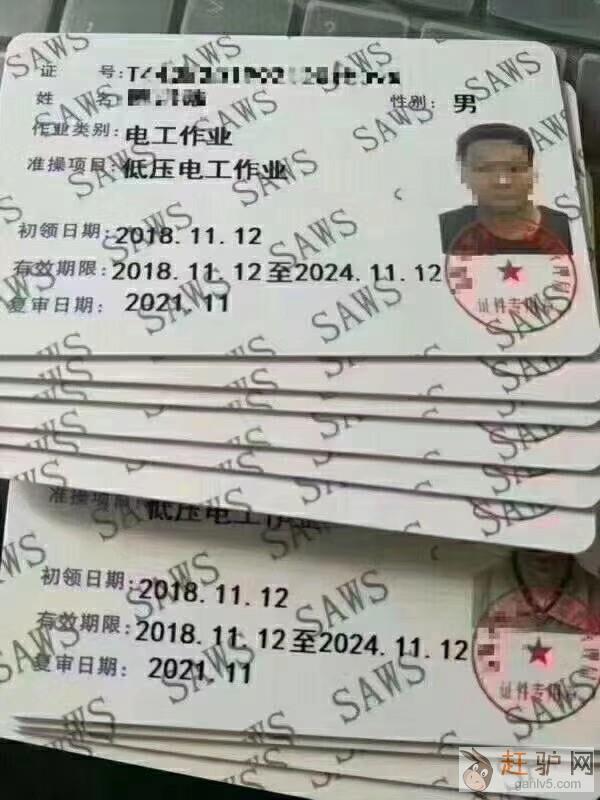 证 号:
姓 名: 性别: 男
作业类别: 电工作业
准操项目: 低压电工作业
初领日期: 2018.11.12
有效期限: 2018.11.12至2024.11.12
复审日期: 2021.11
证件专用
SAWS
准操项目: 低压电工作业
初领日期: 2018.11.12
有效期限: 2018.11.12至2024.11.12
复审日期: 2021.11
证件专用
SAWS
赶驴网
ganlv5.com